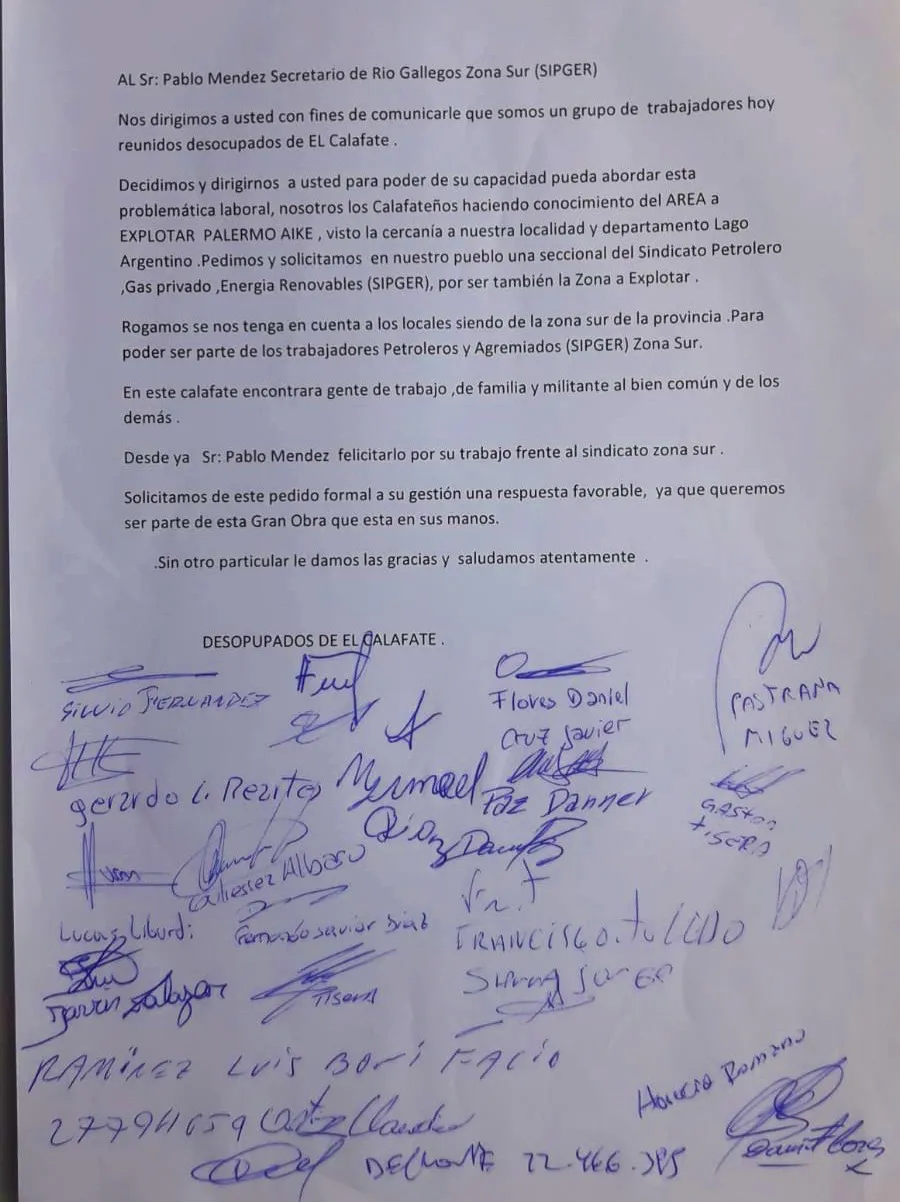 AL Sr: Pablo Mendez Secretario de Rio Gallegos Zona Sur (SIPGER)
Nos dirigimos a usted con fines de comunicarle que somos un grupo de trabajadores hoy
reunidos desocupados de EL Calafate .
Decidimos y dirigirnos a usted para poder de su capacidad pueda abordar esta
problemática laboral, nosotros los Calafateños haciendo conocimiento del AREA a
EXPLOTAR PALERMO AIKE , visto la cercanía a nuestra localidad y departamento Lago
Argentino .Pedimos y solicitamos en nuestro pueblo una seccional del Sindicato Petrolero
,Gas privado ,Energia Renovables (SIPGER), por ser también la Zona a Explotar .
Rogamos se nos tenga en cuenta a los locales siendo de la zona sur de la provincia .Para
poder ser parte de los trabajadores Petroleros y Agremiados (SIPGER) Zona Sur.
En este calafate encontrara gente de trabajo ,de familia y militante al bien común y de los
demás .
Desde ya Sr: Pablo Mendez felicitarlo por su trabajo frente al sindicato zona sur .
Solicitamos de este pedido formal a su gestión una respuesta favorable, ya que queremos
ser parte de esta Gran Obra que esta en sus manos.
.Sin otro particular le damos las gracias y saludamos atentamente .
DESOPUPADOS DE EL CALAFATE .
SILVIO FERNANDEZ
Flores Daniel
PASTRANA
MIGUEZ
Cruz Javier
gerardo
Paz Danner
GASTON
TISERA
Diaz
Albaro
Lucas
Fernando Javier Diaz
FRANCISCO
Salazar
Tisera
RAMÍREZ LUIS
Horacio Romano
Claudio
22.466.385